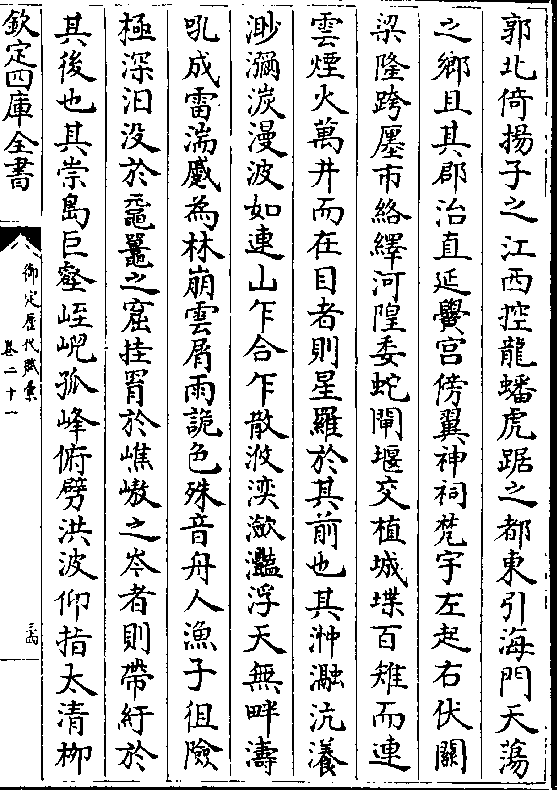 郭北倚揚子之江西控龍蟠虎踞之都東引海門天蕩
之鄉且其郡治直延黌宮傍翼神祠梵宇左起右伏關
梁隆跨㕓市絡繹河隍委蛇閘堰交植城堞百雉而連
雲煙火萬井而在目者則星羅於其前也其浺瀜沆瀁
渺瀰湠漫波如連山乍合乍散㳀湙瀲灎浮天無畔濤
吼成雷湍蹙為林崩雲屑雨詭色殊音舟人漁子徂險
極深汨没於黿鼉之窟挂罥於嶕嶅之岑者則帶紆於
其後也其崇島巨壑峌峴孤峰俯劈洪波仰指太清柳
欽定四庫全書
御定歴代賦彙
卷二十一